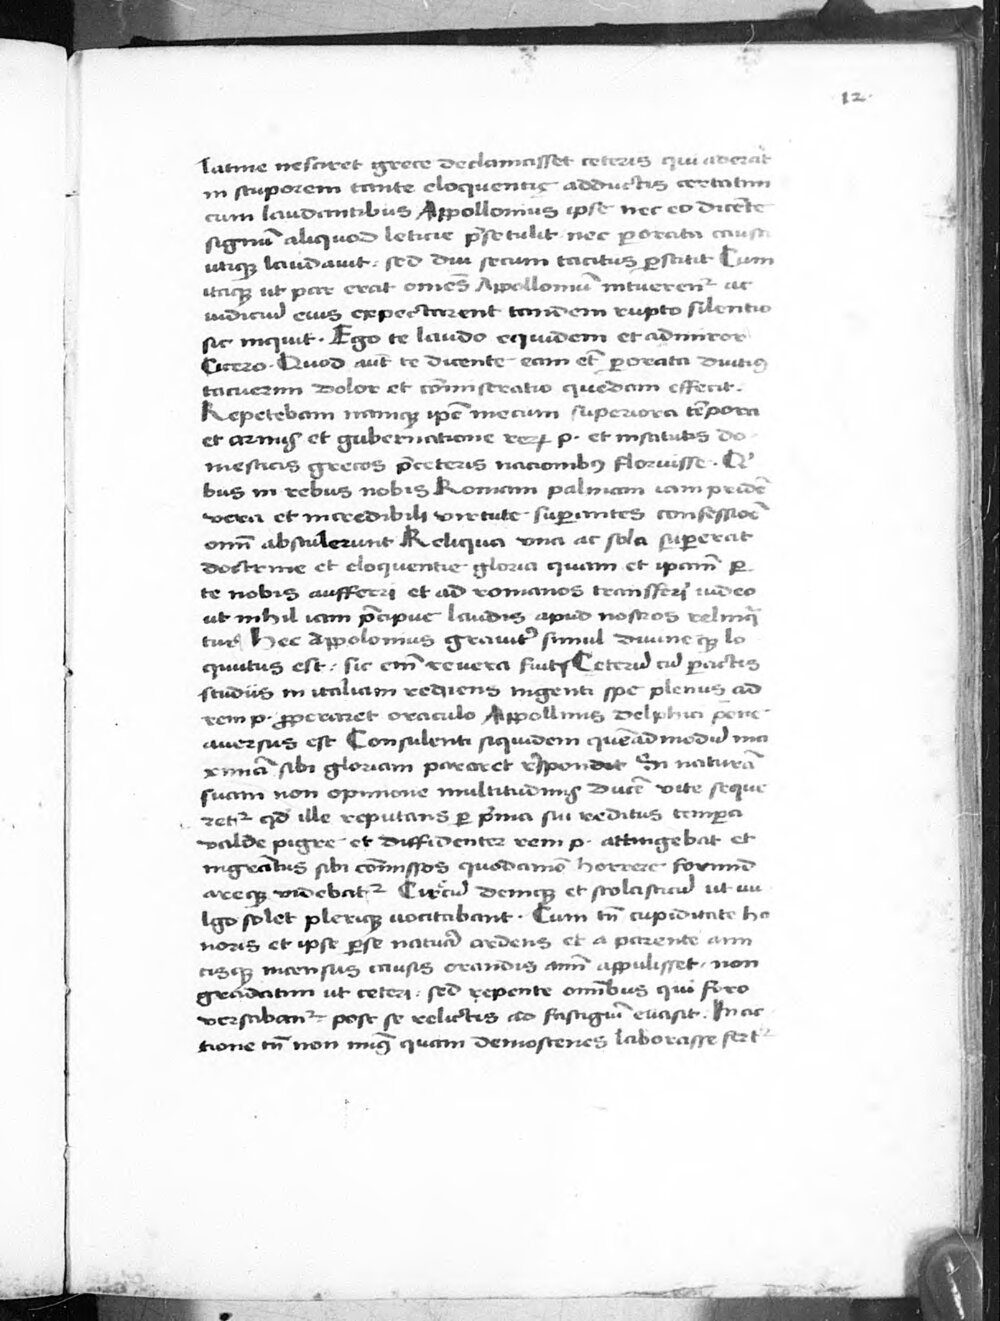 12
latine nesciret grece declamasset ceteris qui aderāt
in stuporem tante eloquentię adductis certatim
cum laudantibus Appollonius ipse nec eo dicēte
signū aliquod leticie p̄setulit nec ꝑorata causa
utiqꝫ laudauit . sed diu secum tacitus ꝑstitit Cum
itaqꝫ ut par erat omēs Appolloniū intuerenᵗ ac
iudiciū eius expectarent tandem rupto silentio
sic inquit . Ego te laudo equidem et admiror
Cicero . Quod aut̄ te dicente eam et̄ ꝑorata diutiꝰ
tacuerim dolor et cōmiseratio quedam effecit .
Repetebam namqꝫ ip̄e mecum superiora tēpora
et armis et gubernatione reꝝ p . et institutis do
mesticis grecos p̄ceteris nacionibꝰ floruisse . Qⁱ
bus in rebus nobis Romani palmam iam pridē
vera et incredibili virtute suꝑantes confessiōe
om̄ abstulerunt Reliqua una ac sola suꝑerat
doctrine et eloquentie gloria quam et ipam̄ ꝑ
te nobis aufferri et ad romanos transferri uideo
ut nihil iam p̄cipue laudis apud nostros relinqͣ
tur Hec Appolonius grauitᵉ simul diuine qꝫ lo
quutus est . sic em̄ reuera fuit Ceterū cū ꝑactis
studiis in italiam rediens ingenti spe plenus ad
rem p . ꝓperaret oraculo Appollinis delphici pene
auersus est Consulenti siquidem queadmodū ma
ximā sibi gloriam pararet r̄spondit Si naturā
suam non opinione multitudinis ducē vite seque
retᵗ qd̄ ille reputans ꝑ p̄ma sui reditus tempora
valde pigre et diffidenter rem p . attingebat et
ingratus sibi cōmissos quodamō horrere formid
areqꝫ videbatᵗ Grecū deniqꝫ et scolasticū ut uu
lgo solet pleriqꝫ uocitabant . Cum tn̄ cupiditate ho
noris et ipse ꝑse natura ardens et a parente ami
cisqꝫ incensus causis orandis aīm appulisset . non
gradatim ut ceteri . sed repente omībus qui foro
versabanᵗ post se relictis ad fastigiū euasit . In ac
tione tn̄ non minꝰ quam demostenes laborasse fertᵗ